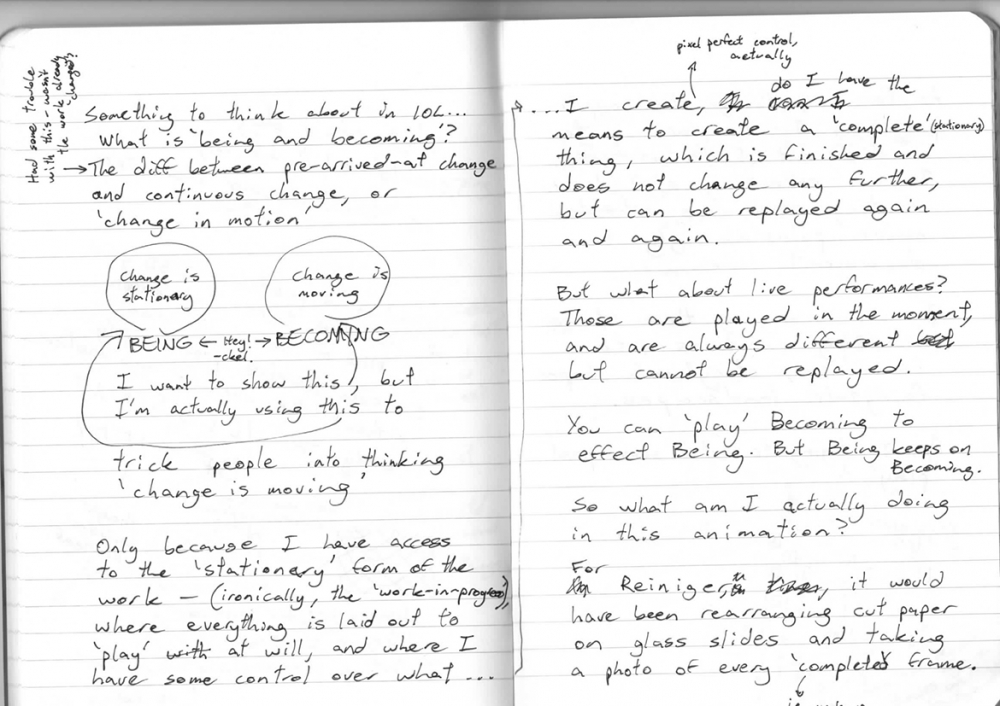 Had some trouble
with this - wasn't
the work already
changed?
Something to think about in LOL...
What is 'being and becoming'?
→ The diff between pre-arrived-at change
and continuous change, or
'change in motion'
change is
stationary
change is
moving
BEING ← Hey! → BECOMING
-ckel.
I want to show this, but
I'm actually using this to
trick people into thinking
'change is moving'
Only because I have access
to the 'stationary' form of the
work – (ironically, the 'work-in-progress'),
where everything is laid out to
'play' with at will, and where I
have some control over what ...
pixel perfect control,
actually
....I create, do I have the
means to create a 'complete' (stationary)
thing, which is finished and
does not change any further,
but can be replayed again
and again.
But what about live performances?
Those are played in the moment,
and are always different
but cannot be replayed.
You can 'play' Becoming to
effect Being. But Being keeps on
Becoming.
So what am I actually doing
in this animation?
For
Reiniger, it would
have been rearranging cut paper
on glass slides and taking
a photo of every 'completed' frame.